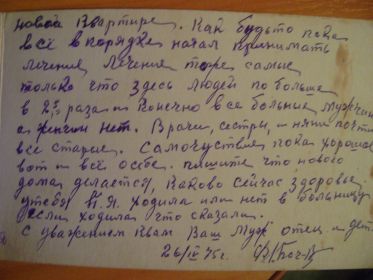 новой квартире. Как будто пока
всё в порядке начал принимать
лечения лечение тоже самое
только что здесь людей по больше
в 2 раза и конечно все больные мужчин
а женчин нет. Врачи, сестры, и няни почти
все старые. Самочуствие пока хорошое
вот и всё о себе. пишите что нового
дома делается, каково сейчас здоровье
у тебя Н.Я. ходила или нет в больницу
если ходила что сказали.
с уважением к вам Ваш муж отец и дед.
26/IV 75г.